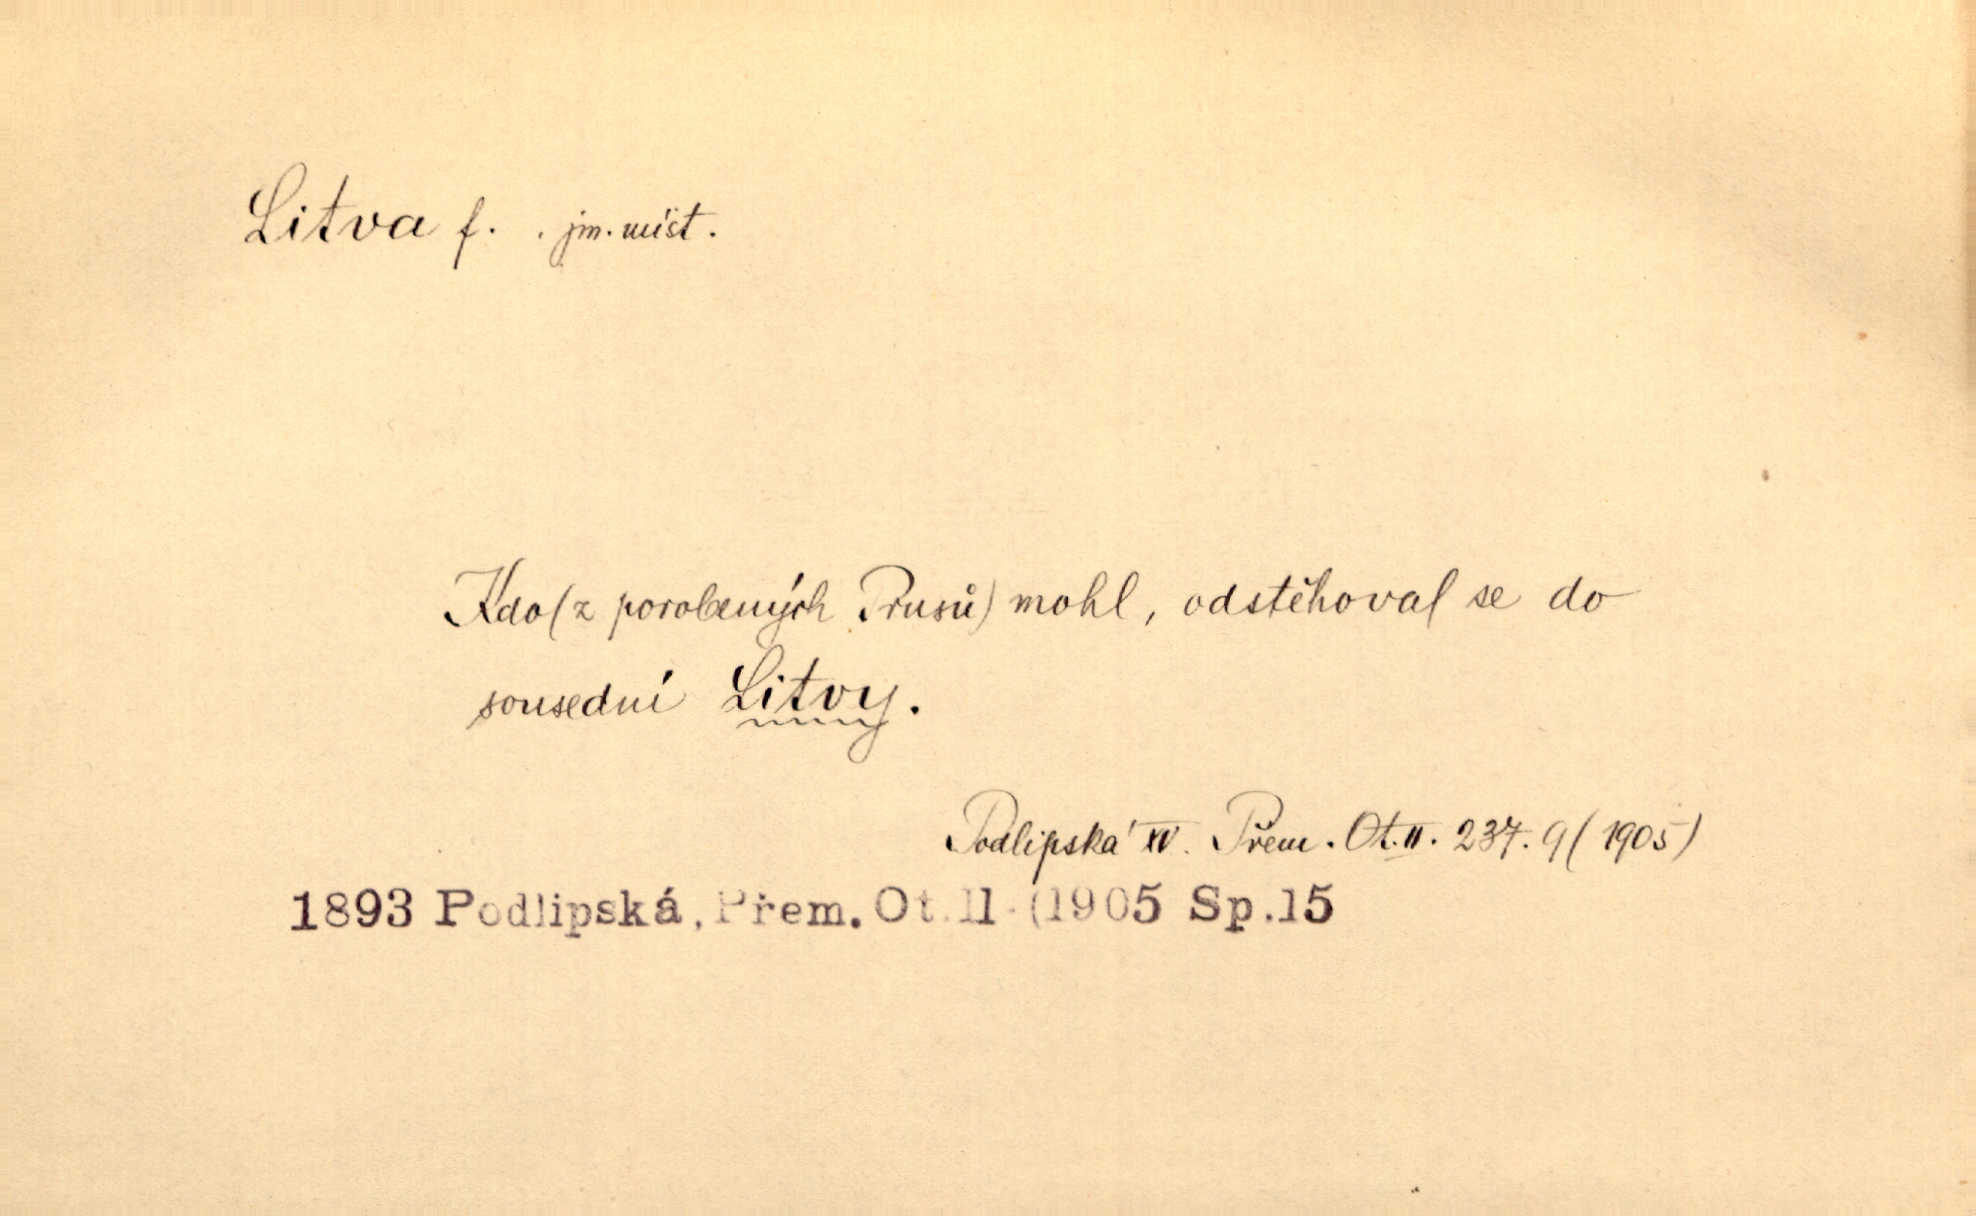 Litva f. . jm. míst.
Kdo (z porobených Prusů) mohl, odstěhoval se do
sousední Litvy.
Podlipská XV. Přem. Ot. II. 237. 9 (1905)
1893 Podlipská, Přem. Ot. II (1905 Sp. 15